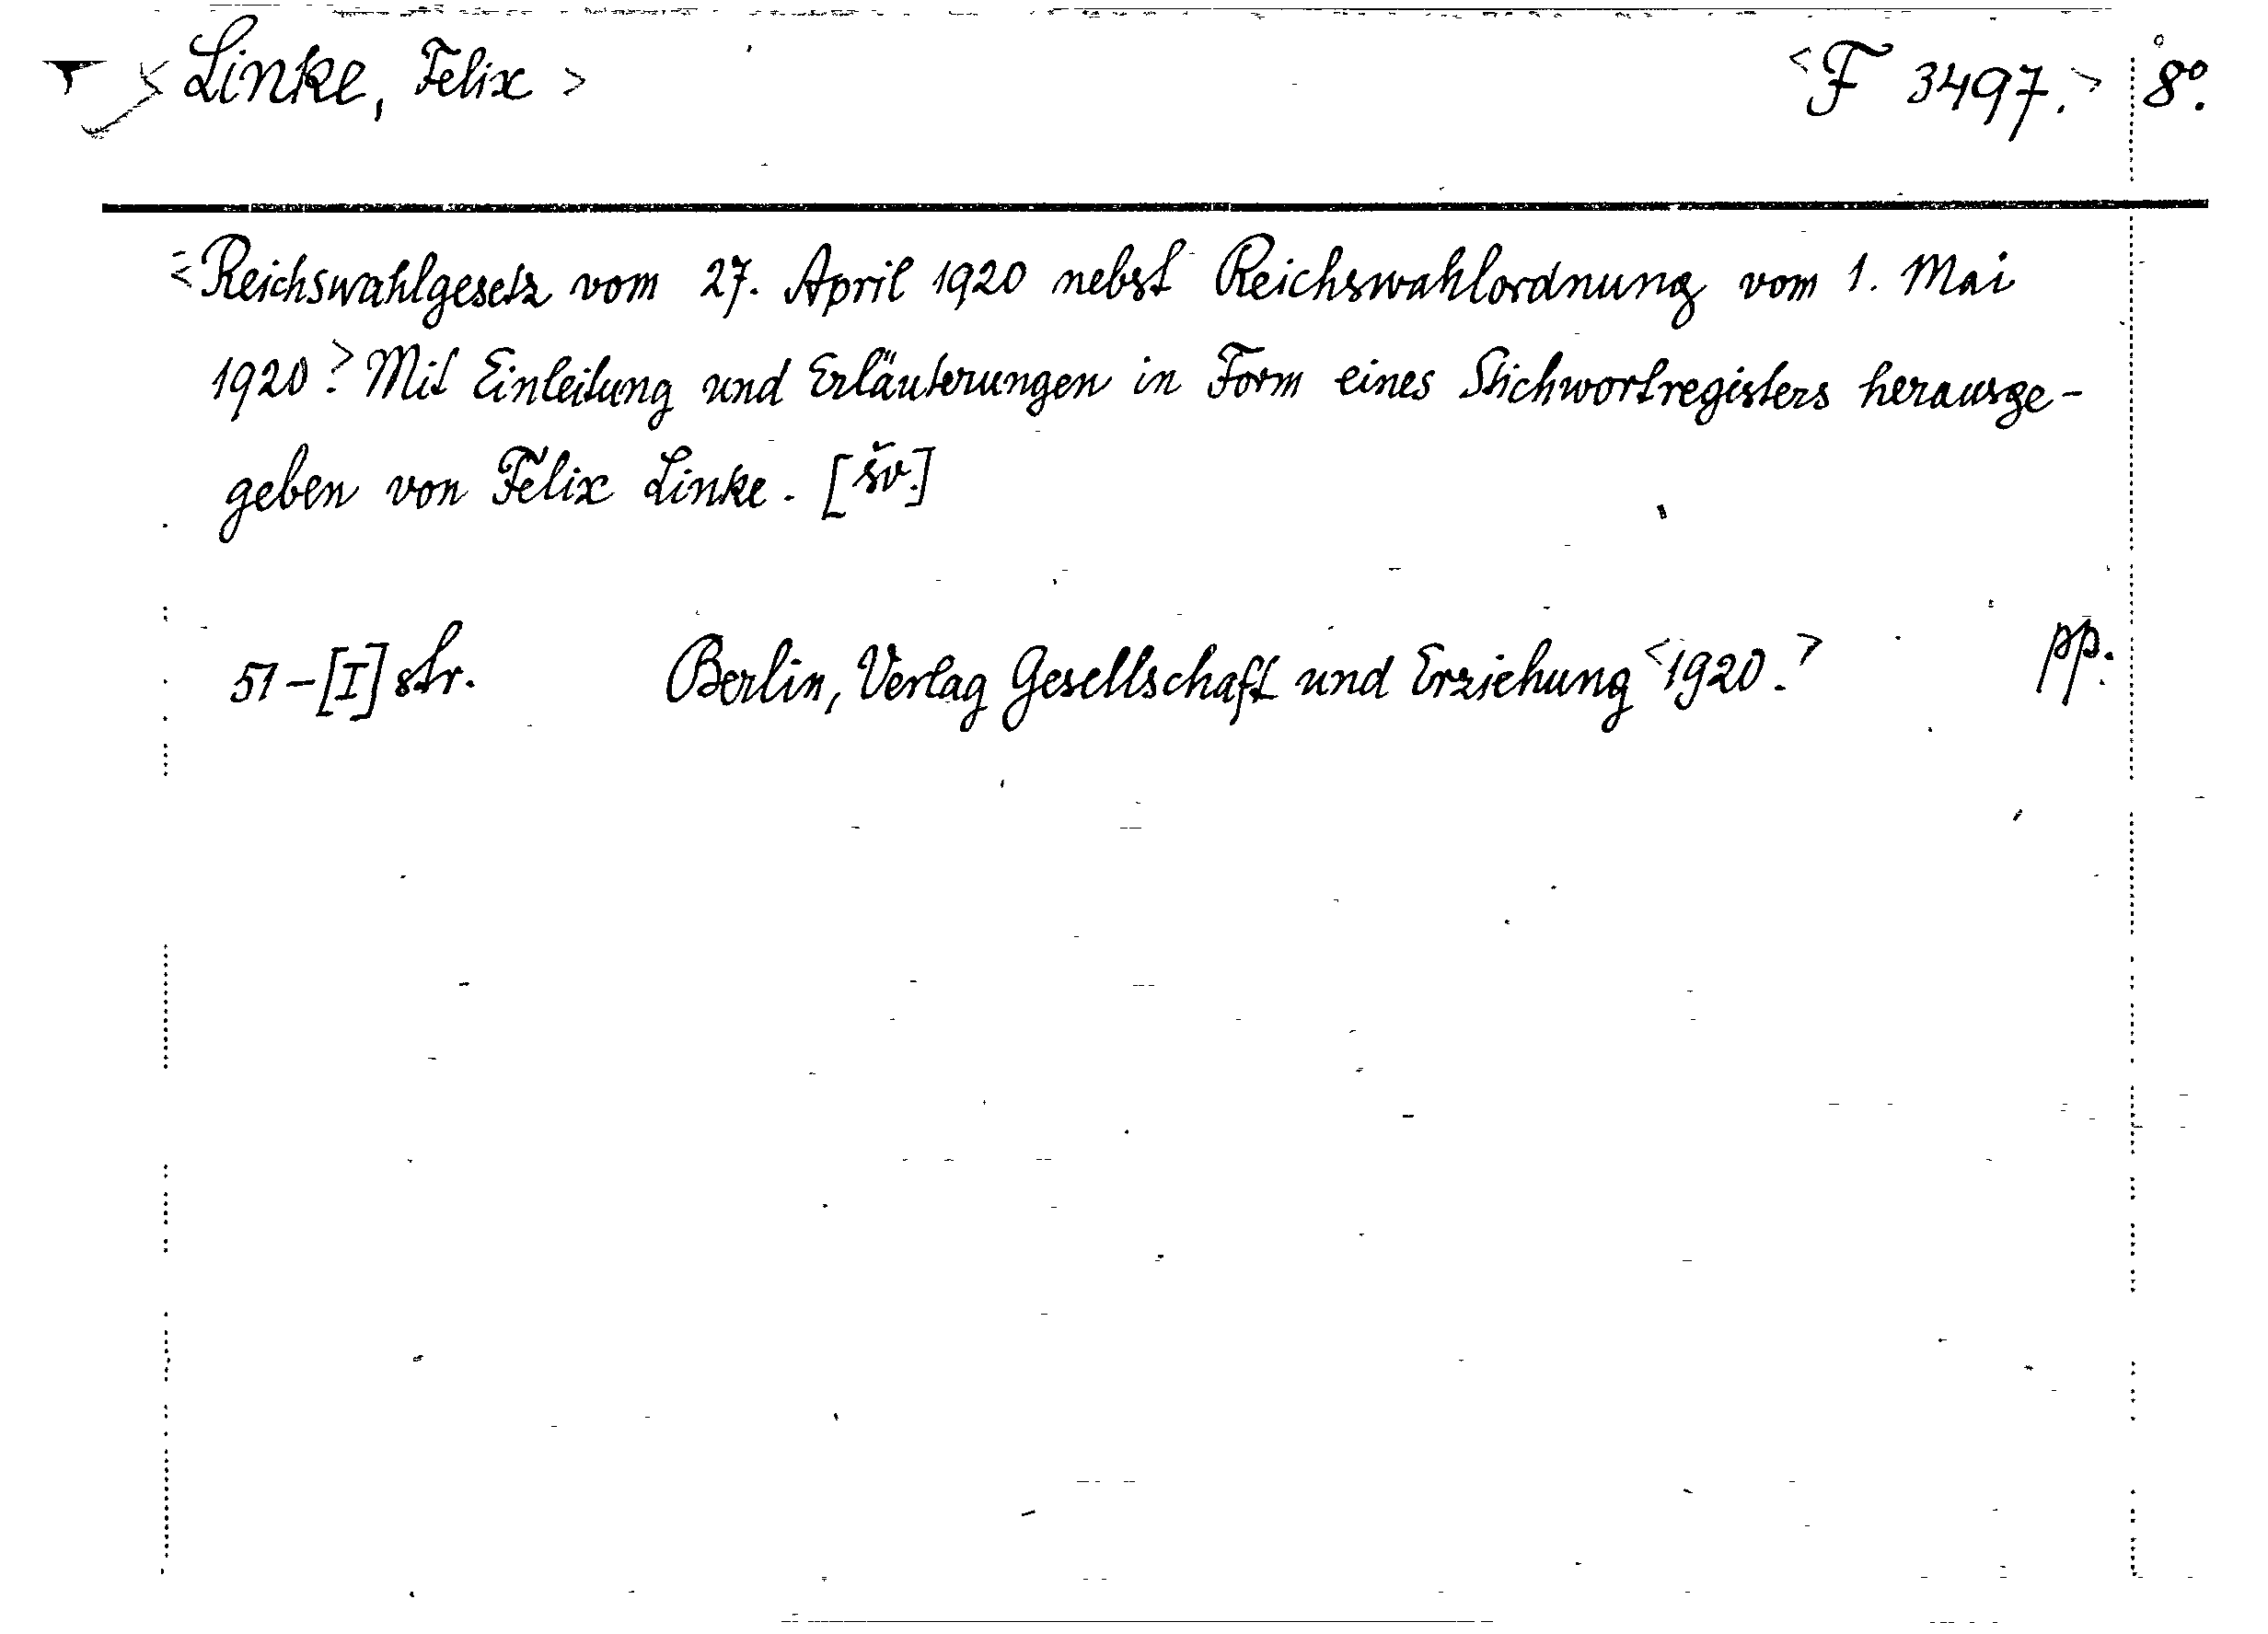 < Linke, Felix > <F 3497.> 8°.
<Reichswahlgesetz vom 27. April 1920 nebst Reichswahlordnung vom 1. Mai
1920.> Mit Einleitung und Erläuterungen in Form eines Stichwortregisters herausge-
geben von Felix Linke. [šv.]
51-[I] str. Berlin, Verlag Gesellschaft und Erziehung <1920.> pp.